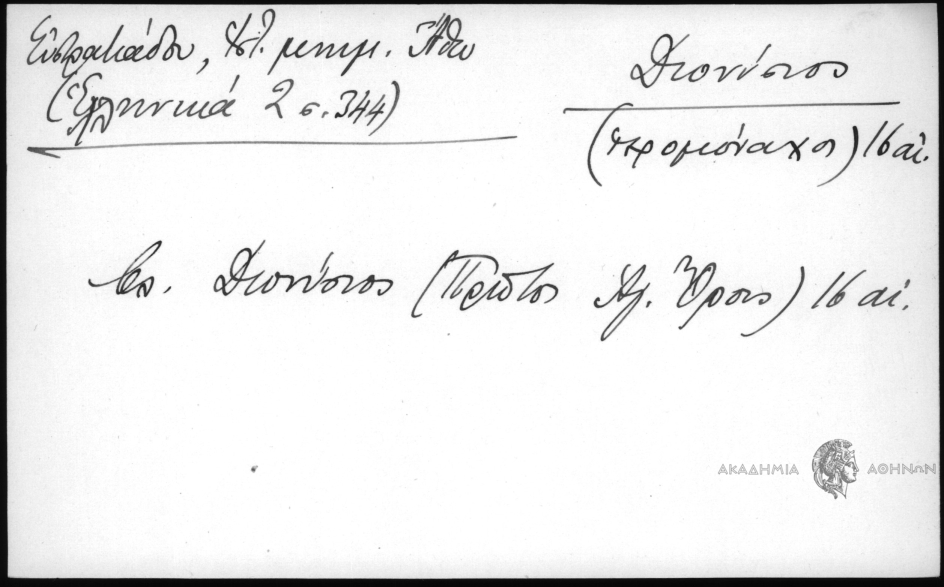 Εὐστρατιάδου, Ἱστ. μνημ. Ἄθω
(Ἑλληνικά 2 σ. 344)
Διονύσιος
(ἱερομόναχος) 16 αἰ.
βλ. Διονύσιος (Πρῶτος Ἁγ. Ὄρους) 16 αἰ.
ΑΚΑΔΗΜΙΑ ΑΘΗΝΩΝ